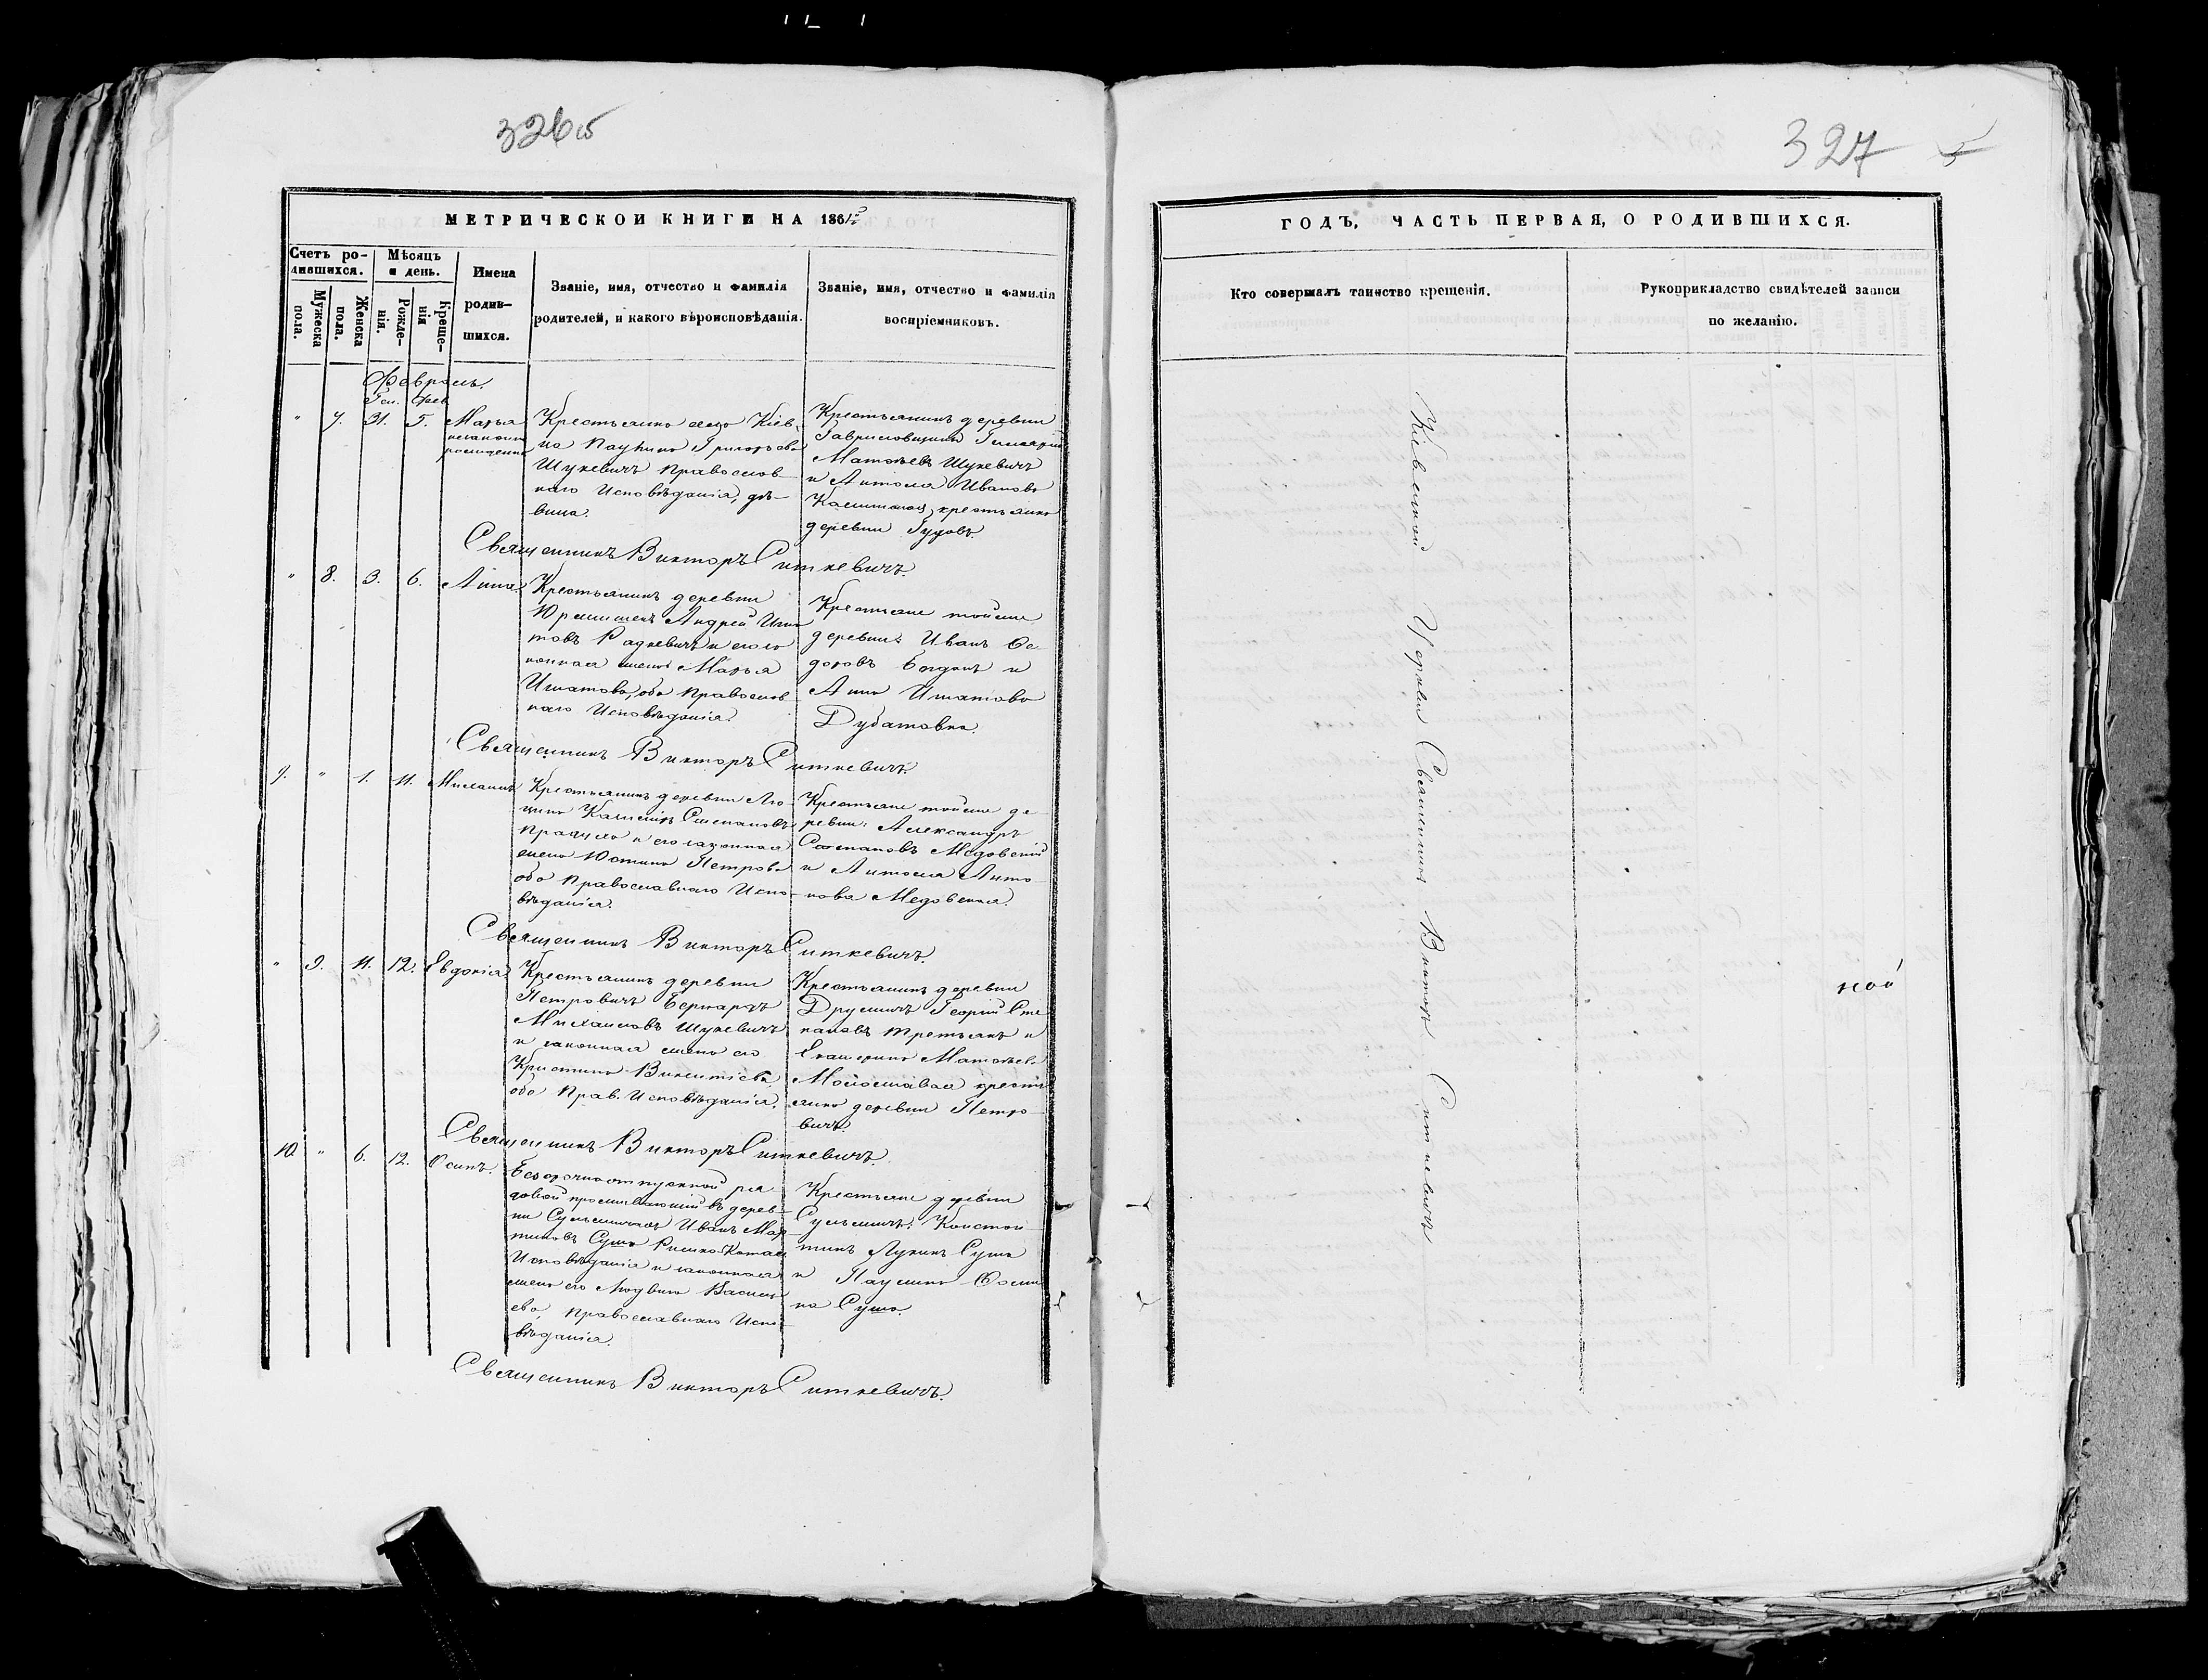 326об
МЕТРИЧЕСКОЙ КНИГИ НА 186
Счетъ ро-
дившихся.
Мужеска
пола.
Женска
пола.
Мѣсяцъ
и день.
Рожде-
нія.
Креще-
нія
Имена
родив-
шихся.
Званіе, имя, отчество и фамилія
родителей, и какого вѣроисповѣданія.
Званіе, имя, отчество и фамилія
воспріемниковъ.
Февраль.
Ген. Фев.
" 7. 31. 5. Марья
незаконно
рожденна
Крестьянка села Кіев-
ца Паулина Григорьева
Шукевичъ Православ-
наго Исповѣданія, дѣ-
вица.
Крестьянинъ деревни
Гавриловщины
Матѳѣевъ Шукевичъ
и Антоля Иванова
крестьянка
деревни Гудовъ.
Священникъ Викторъ Ситкевичъ.
" 8. 3. 6. Анна.
Крестьянинъ деревни
Андрей Игна
товъ Радкевичъ и его за
конная жена Марья
Игнатова, оба Православ
наго Исповѣданія.
Крестьяне тойже
деревни: Иванъ Ѳе-
доровъ Богданъ и
Анна Игнатова
Дубатовка.
Священникъ Викторъ Ситкевичъ.
9. " 1. 11. Михаилъ
Крестьянинъ деревни
Степановъ
и его законная
жена Юстина Петрова
оба Православнаго Испо-
вѣданія.
Крестьяне тойже де-
ревни: Александръ
Степановъ Медовскій
и Антоля Анто-
нова Медовская.
Священникъ Викторъ Ситкевичъ.
" 9. 11. 12. Евдокія
Крестьянинъ деревни
Петровичъ Бернардъ
Михаиловъ Шукевичъ
и законная жена его
Кристина Викентіева,
оба Прав. Исповѣданія.
Крестьянинъ деревни
Георгій Сте
пановъ Третьякъ и
Екатерина Матѳѣева
крестья
янка деревни Петро-
вичъ.
Священникъ Викторъ Ситкевичъ.
10. " 6. 12. Осипъ.
Безсрочноотпускной ря
довой проживающій въ дерев-
ни Иванъ Мар-
тиновъ Сушко Римско-Катол.
Исповѣданія и законная
жена его Людвика Василь
ева, Православнаго Испо-
вѣданія.
Крестьяне деревни
Констан-
тинъ Лукинъ Сушко
и Паулина Ѳоми
на Сушко.
Священникъ Викторъ Ситкевичъ.
327
ГОДЪ, ЧАСТЬ ПЕРВАЯ, О РОДИВШИХСЯ.
Кто совершалъ таинство крещенія.
Рукоприкладство свидѣтелей записи
по желанію.
Кіевецкой Церкви Священникъ Викторъ Ситкевичъ